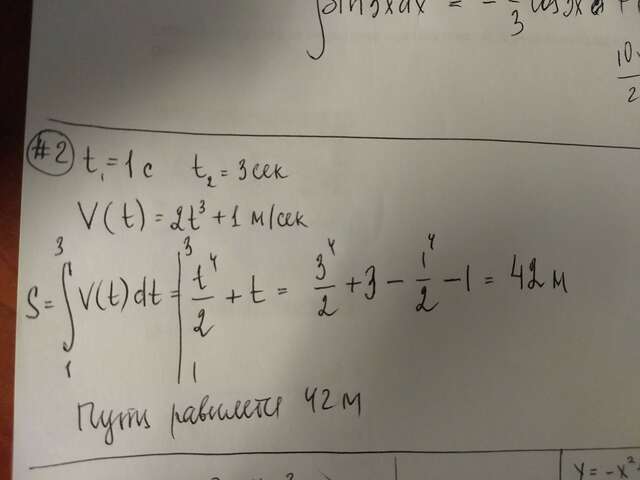 ∫sin3xdx = - 1/3 cos3x
10
2
#2 t₁=1 с t₂=3 сек
V(t)=2t³+1 м/сек
S=∫₁³ V(t)dt = |₁³ t⁴/2 + t = 3⁴/2 + 3 - 1⁴/2 - 1 = 42 м
Путь равняется 42 м
y=-x²